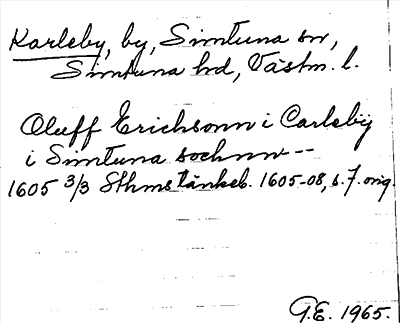 Karleby, by, Simtuna sn,
Simtuna hd, Västm. l.
Oluff Erichsonn i Carleby
i Simtuna sochnn --
1605 3/3 Sthms tänkeb. 1605-08, s. 7. orig.
G.E. 1965.